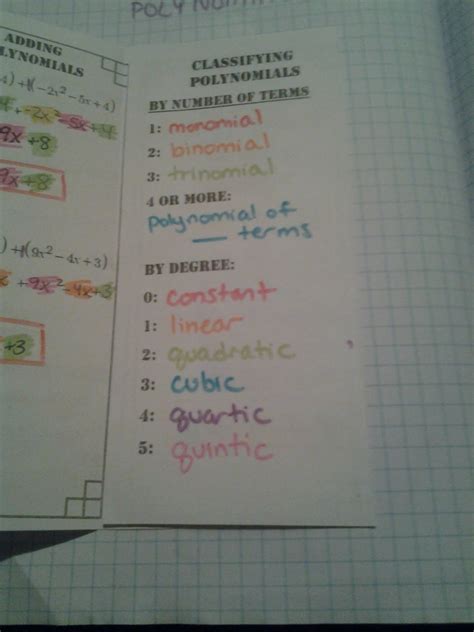 POLYNOM
ADDING
LYNOMIALS
4) + 1(-2x² - 5x + 4)
+ -2x² - 5x + 4
9x + 8
9x + 8
) + 1(9x² - 4x + 3)
+ 9x² - 4x + 3
+3
CLASSIFYING
POLYNOMIALS
BY NUMBER OF TERMS
1: monomial
2: binomial
3: trinomial
4 OR MORE:
polynomial of
___ terms
BY DEGREE:
0: constant
1: linear
2: quadratic
3: cubic
4: quartic
5: quintic